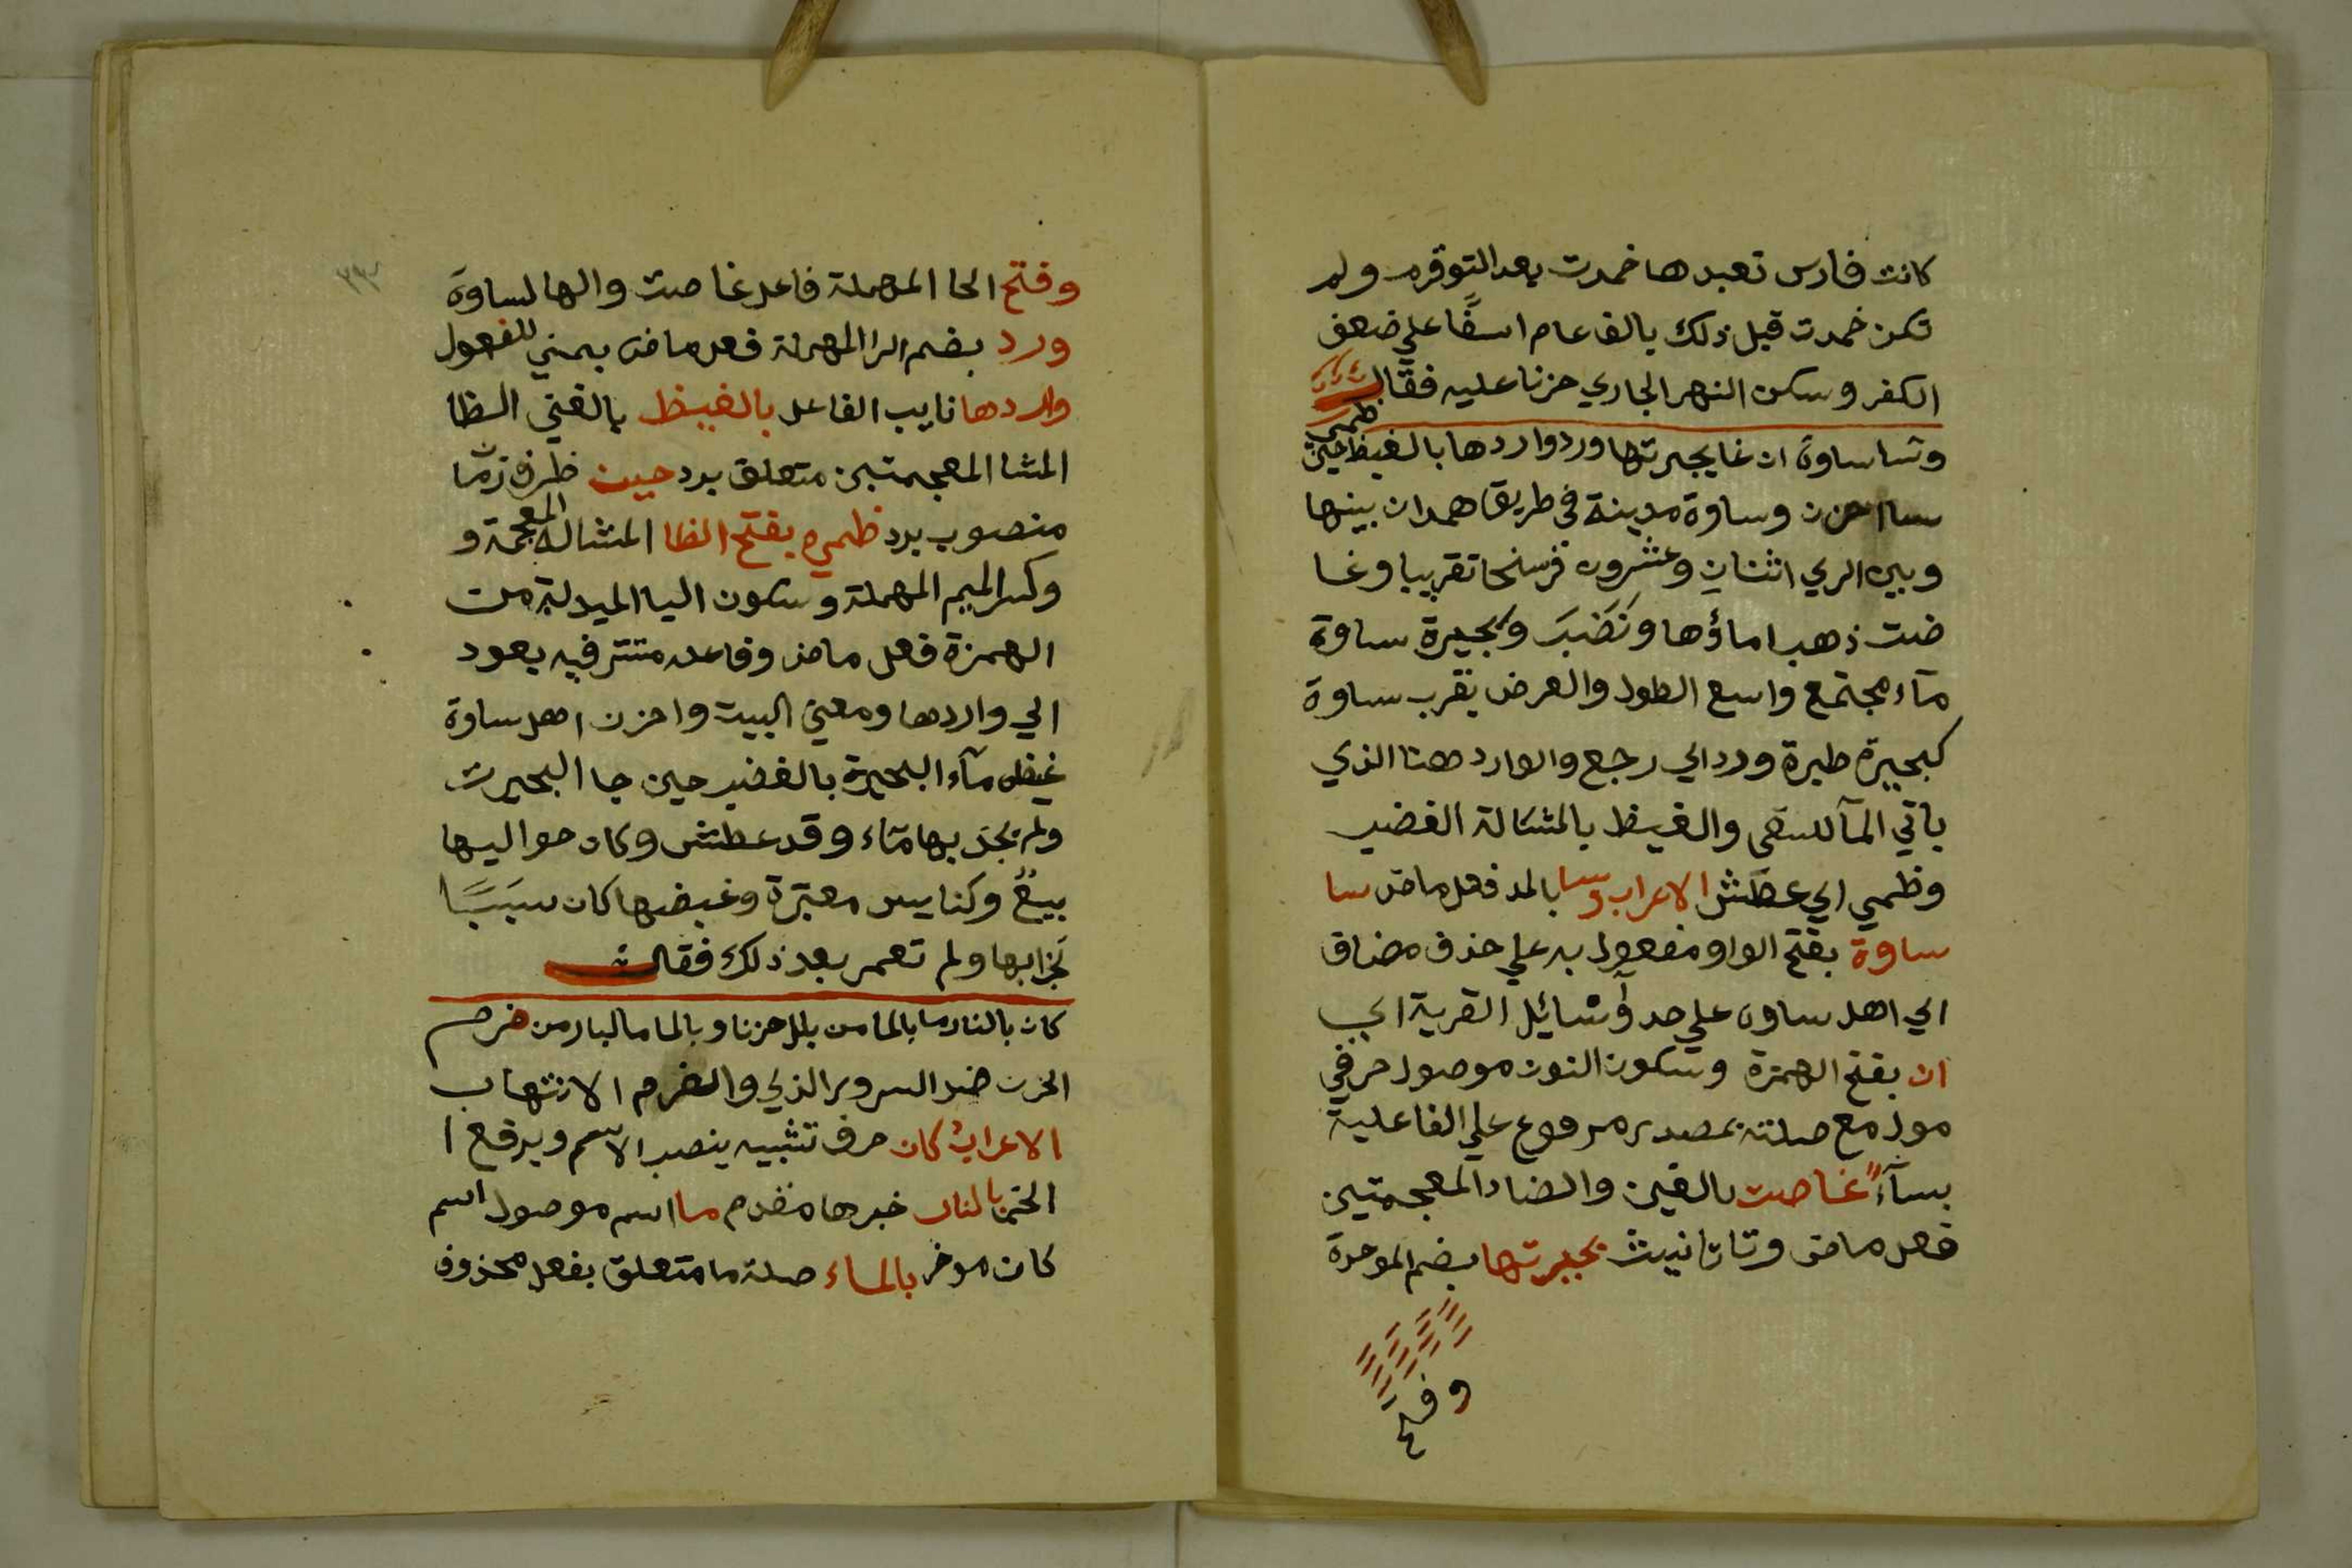 كانت فارس تعبدها خمدت بعد التوقرم ولم
تكن خمدت قبل ذلك بالف عام اسفًا علي ضعف
الكفر وسكن النهر الجاري حزنا عليه فقال
وسا ساوة ان غا بحيرتها ورد واردها بالغيظ حين ظمي
سا احزن وساوة مدينة في طريق همدان بينها
وبين الري اثنان وعشرون فرسخا تقريبا وغا
ضت ذهب ماؤها ونَضَبَ وبحيرة ساوة
مآء مجتمع واسع الطول والعرض بقرب ساوة
كبحيرة طبرة ورد اي رجع والوارد هنا الذي
ياتي المآ للسقي والغيظ بالمشالة الغضب
وظمي اي عطش الاعراب وسا بالمد فعل ماض سا
ساوة بفتح الواو مفعول به علي حذف مضاف
اي اهل ساوة علي حد وسائل القرية اي
ان بفتح الهمزة وسكون النون موصول حرفي
مول مع صلته بمصدر مرفوع علي الفاعلية
بسآء غاصت بالغين والضاد المعجمتين
فعل ماض وتا تانيث بحيرتها بضم الموحدة
وفتح
وفتح الحا المهملة فاعل غاصت والها لساوة
ورد بضم الرا المهملة فعل ماض بمني للمفعول
واردها نايب الفاعل بالغيظ بالغين الظا
المشا المعجمتين متعلق برد حين ظرف زمان
منصوب برد ظمي بفتح الظا المشالة المعجمة و
وكسر الميم المهملة وسكون اليا المبدلة من
الهمزة فعل ماض وفاعله متتر فيه يعود
الي واردها ومعني البيت واحزن اهل ساوة
غيض مآء البحيرة بالغضب حين جا البحيرت
ولم يجد بها مآء وقد عطش وكان حواليها
بيعٌ وكنايس معتبرة وغيضها كان سببًا
لخرابها ولم تعمر بعد ذلك فقال
كان بالنار ما بالما من بلل حزنا وبالما ما لبار من ضرم
الحزن ضد السرور الذي والضرم الانتهاب
الاعراب كان حرف تشبيه ينصب الاسم ويرفع ا
الخبر بالنار خبرها مقدم ما اسم موصول اسم
كان موخر بالماء صلة ما متعلق بفعل محذوف